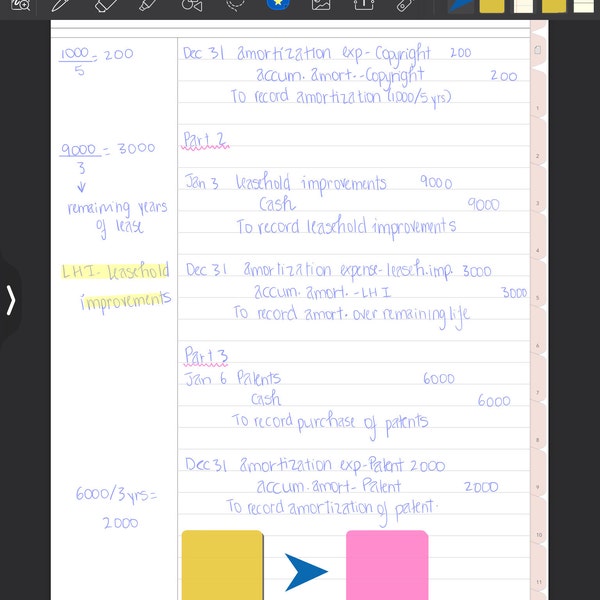 1000
5
= 200
Dec 31 amortization exp- Copyright 200
accum. amort.-Copyright 200
To record amortization (1000/5 yrs)
Part 2
9000
3
= 3000
remaining years
of lease
Jan 3 leasehold improvements 9000
Cash 9000
To record leasehold improvements
LHI. leasehold
improvements
Dec 31 amortization expense- leaseh.imp. 3000
accum. amort. -LHI 3000
To record amort. over remaining life
Part 3
Jan 6 Patents 6000
Cash 6000
To record purchase of patents
6000/3 yrs=
2000
Dec 31 amortization exp-Patent 2000
accum.amort- Patent 2000
To record amortization of patent.
1
2
3
4
5
6
7
8
9
10
11